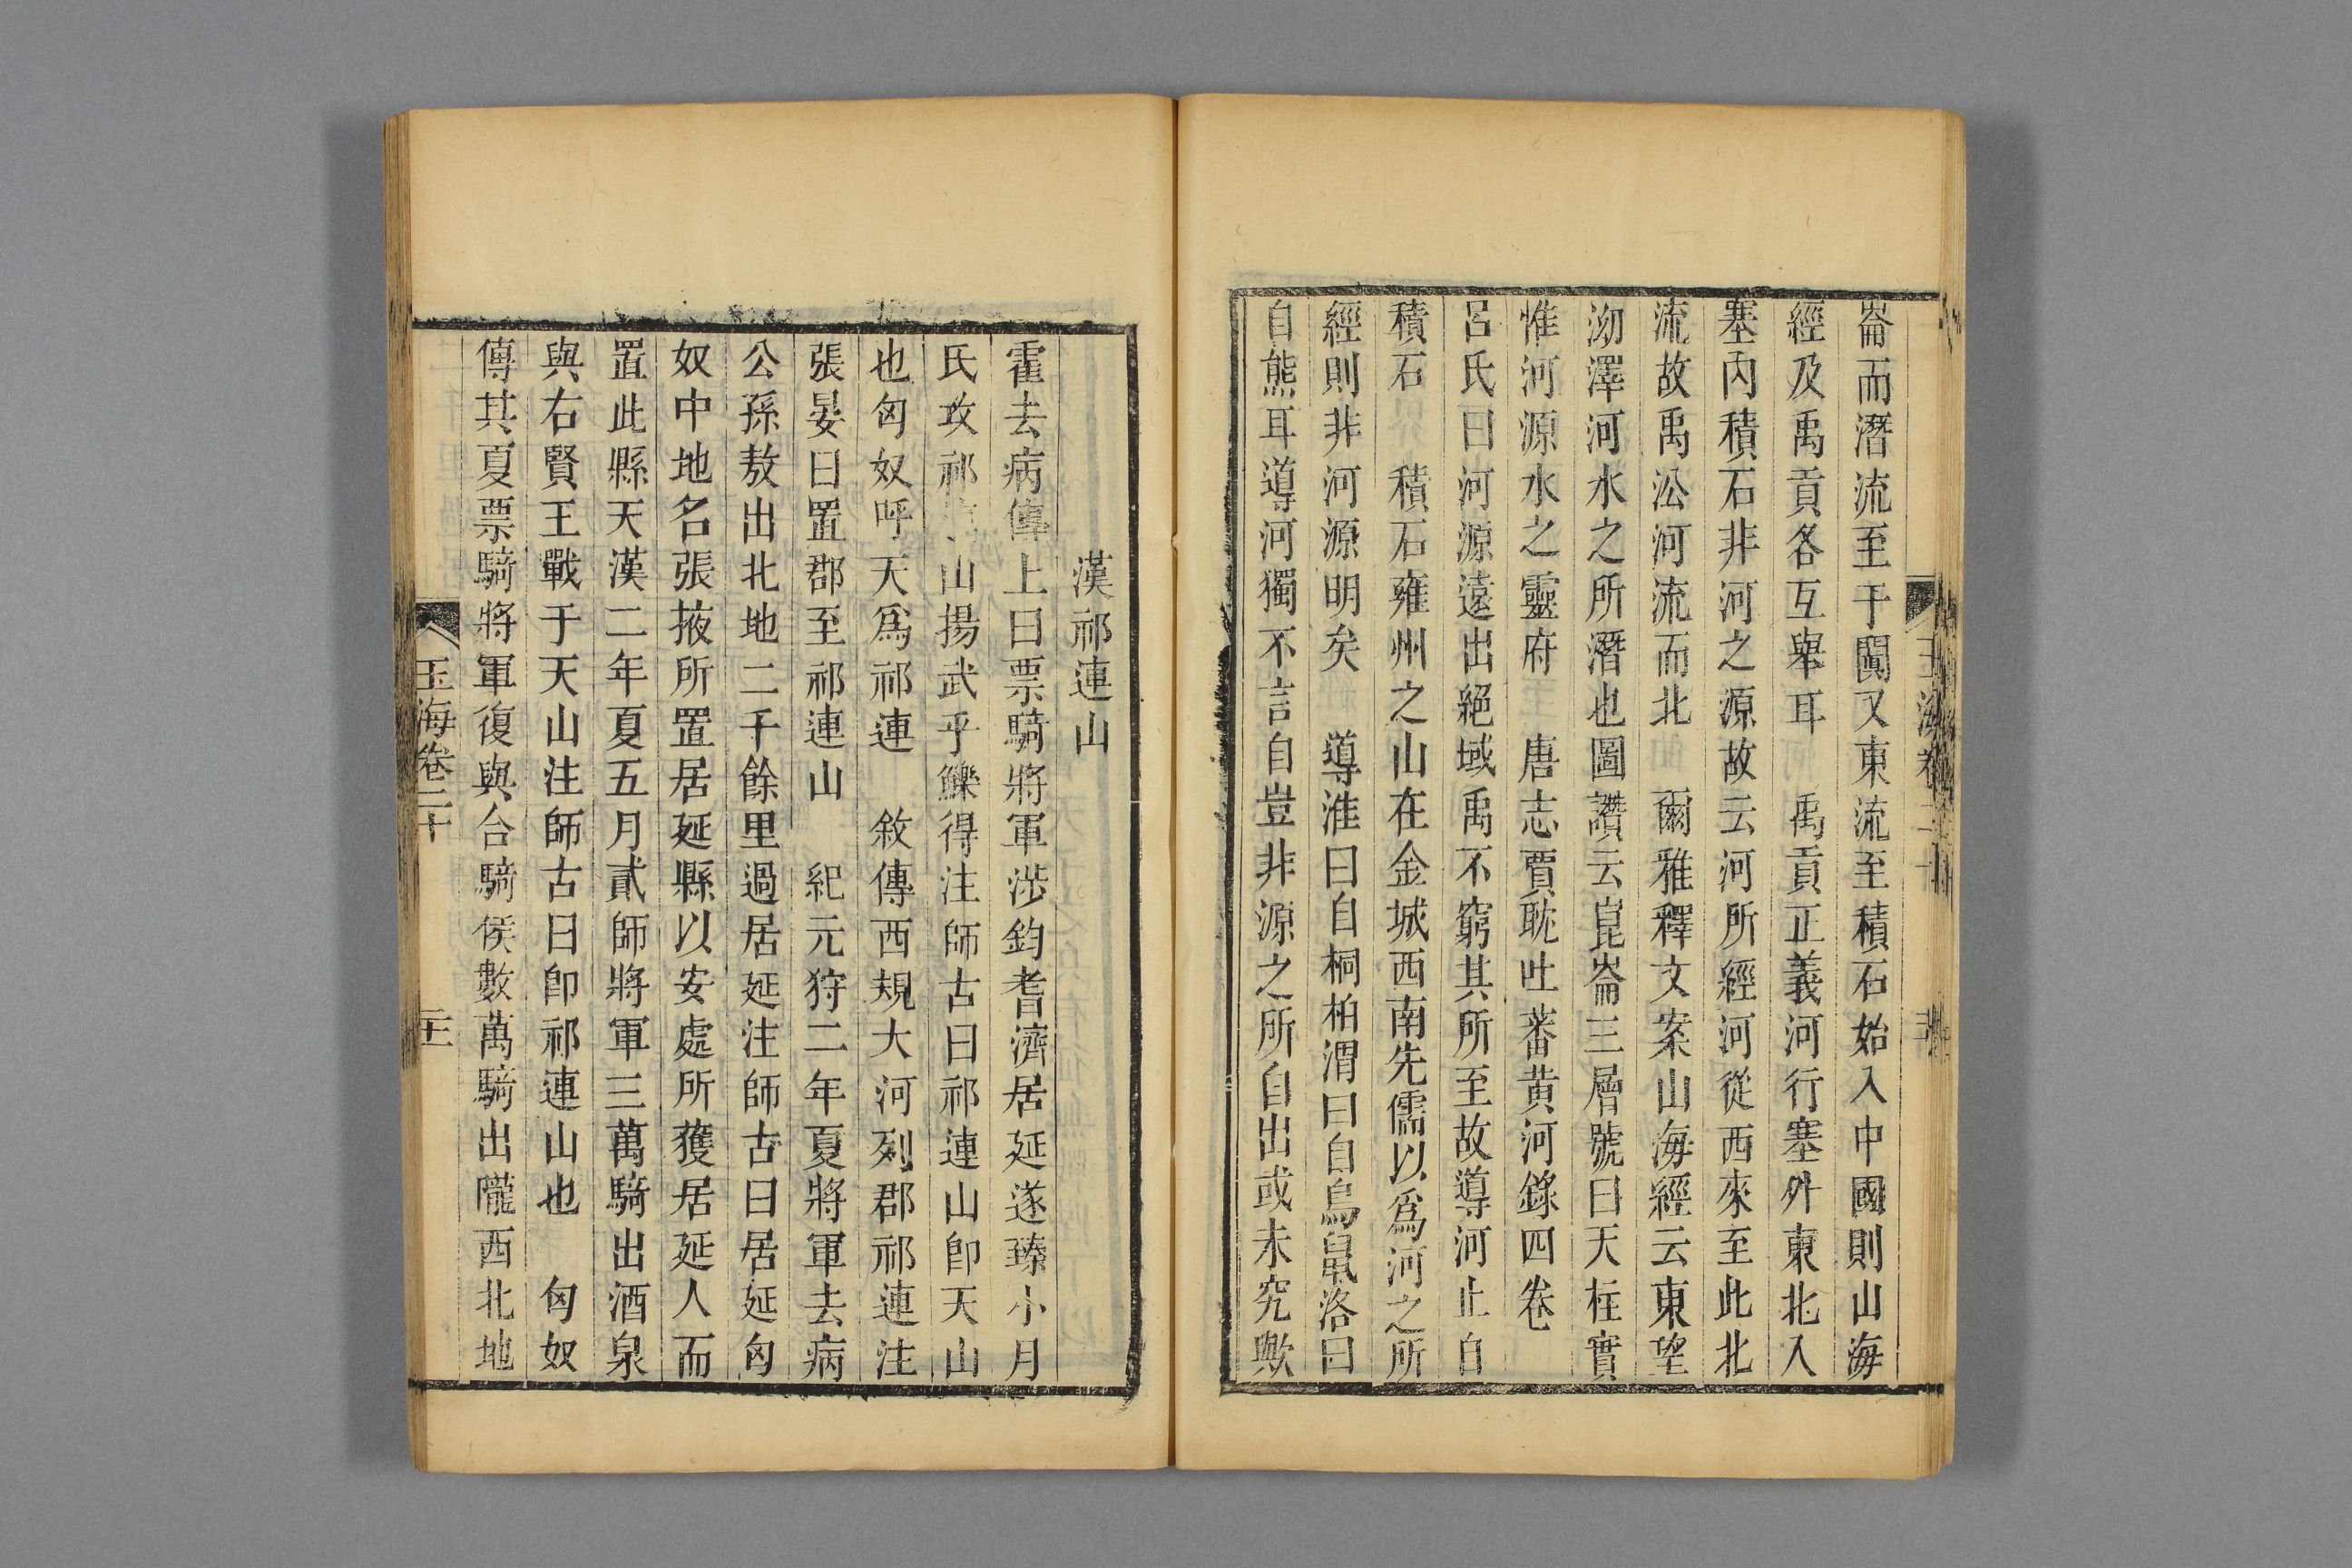 崙而潛流至于闐又東流至積石始入中國則山海
經及禹貢各互舉耳　禹貢正義河行塞外東北入
塞內積石非河之源故云河所經河從西來至此北
流故禹㳂河流而北　爾雅釋文案山海經云東望
泑澤河水之所潛也圖讚云崑崙三層號曰天柱實
惟河源水之靈府　唐志賈耽吐蕃黃河錄四卷
呂氏曰河源遠出絕域禹不窮其所至故導河止自
積石　積石雍州之山在金城西南先儒以爲河之所
經則非河源明矣　導淮曰自桐柏渭曰自鳥鼠洛曰
自熊耳導河獨不言自豈非源之所自出或未究歟
漢祁連山
霍去病傳上曰票騎將軍涉鈞耆濟居延遂臻小月
氏攻祁連山揚武乎鱳得注師古曰祁連山卽天山
也匈奴呼天爲祁連　敘傳西規大河列郡祁連注
張晏曰置郡至祁連山　紀元狩二年夏將軍去病
公孫敖出北地二千餘里過居延注師古曰居延匈
奴中地名張掖所置居延縣以安處所獲居延人而
置此縣天漢二年夏五月貳師將軍三萬騎出酒泉
與右賢王戰于天山注師古曰卽祁連山也　匈奴
傳其夏票騎將軍復與合騎侯數萬騎出隴西北地
玉海卷二十　二十一